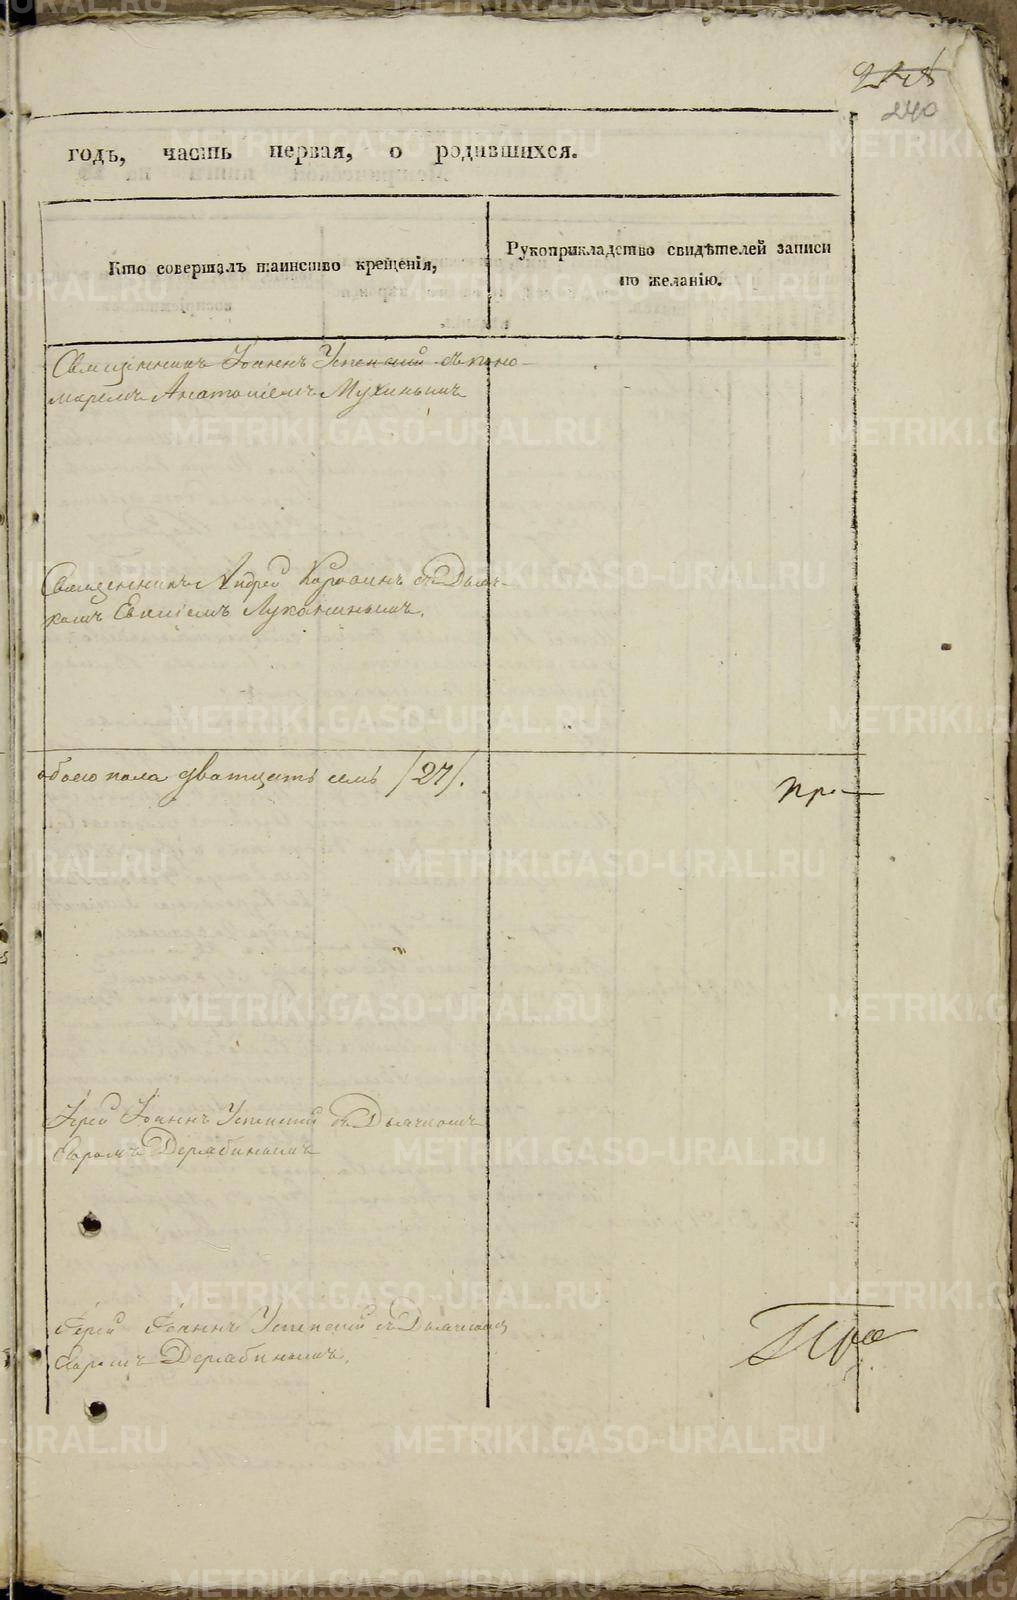 240
годъ, часть первая, о родившихся.
Кто совершалъ таинство крещенія,
Рукоприкладство свидѣтелей записи
по желанію.
Священникъ Іоаннъ Успенскій съ поно-
маремъ Анатоліемъ Мухинымъ
Священникъ Андрей Коровинъ съ Дьяч-
комъ Луканинымъ.
обоего пола дватцать семь /27/.
Іерей Іоаннъ Успенскій съ Дьячкомъ
Дерябинымъ
Іерей Іоаннъ Успенскій съ Дьячкомъ
Дерябинымъ.
METRIKI.GASO-URAL.RU